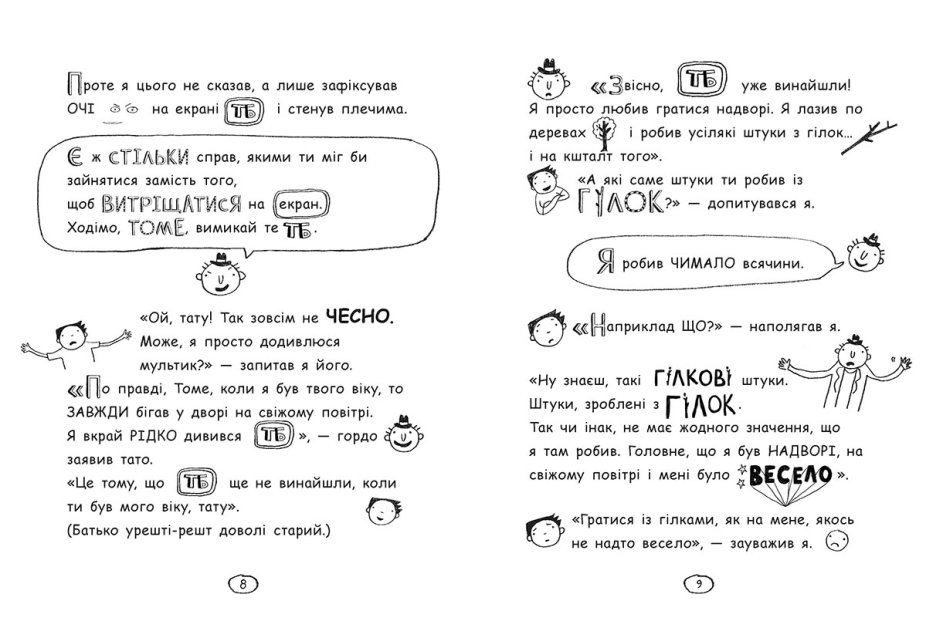 Проте я цього не сказав, а лише зафіксував
ОЧІ на екрані ТБ і стенув плечима.
Є ж СТІЛЬКИ справ, якими ти міг би
зайнятися замість того,
щоб ВИТРІЩАТИСЯ на екран.
Ходімо, ТОМЕ, вимикай те ТБ.
«Ой, тату! Так зовсім не ЧЕСНО.
Може, я просто додивлюся
мультик?» — запитав я його.
«По правді, Томе, коли я був твого віку, то
ЗАВЖДИ бігав у дворі на свіжому повітрі.
Я вкрай РІДКО дивився ТБ », — гордо
заявив тато.
«Це тому, що ТБ ще не винайшли, коли
ти був мого віку, тату».
(Батько урешті-решт доволі старий.)
8
«Звісно, ТБ уже винайшли!
Я просто любив гратися надворі. Я лазив по
деревах і робив усілякі штуки з гілок...
і на кшталт того».
«А які саме штуки ти робив із
ГІЛОК?» — допитувався я.
Я робив ЧИМАЛО всячини.
«Наприклад ЩО?» — наполягав я.
«Ну знаєш, такі ГІЛКОВІ штуки.
Штуки, зроблені з ГІЛОК.
Так чи інак, не має жодного значення, що
я там робив. Головне, що я був НАДВОРІ, на
свіжому повітрі і мені було ВЕСЕЛО ».
«Гратися із гілками, як на мене, якось
не надто весело», — зауважив я.
9